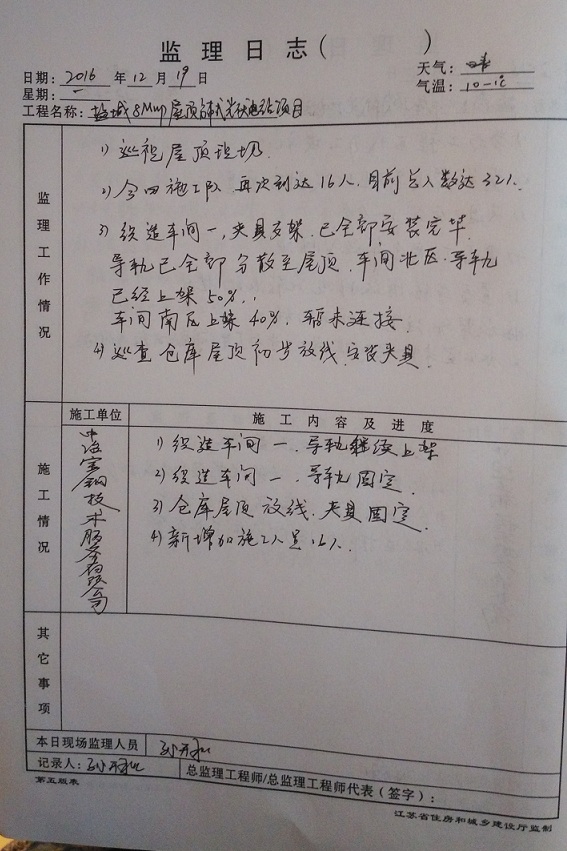 监理日志（ ）
日期：2016 年 12 月 19 日 天气：
星期：一 气温：10-1℃
工程名称：盐城8Mwp屋顶 光伏电站项目
监理工作情况
1) 巡视屋顶现场.
2) 今 施工队 再次到达16人，目前总人数达32人.
3) 织造车间一，夹具支架，已全部安装完毕.
导轨已全部分散至屋顶，车间北区，导轨
已经上架50%，
车间南区上架40%，暂未连接
4) 巡查仓库屋顶初步放线，安装夹具.
施工情况
施工单位 施工内容及进度
宝钢技术服务有限公司
1) 织造车间一，导轨继续上架
2) 织造车间一，导轨固定.
3) 仓库屋顶放线，夹具固定.
4) 新增加施工人员16人.
其它事项
本日现场监理人员 孙
记录人：孙 总监理工程师/总监理工程师代表（签字）：
第五版表 江苏省住房和城乡建设厅监制